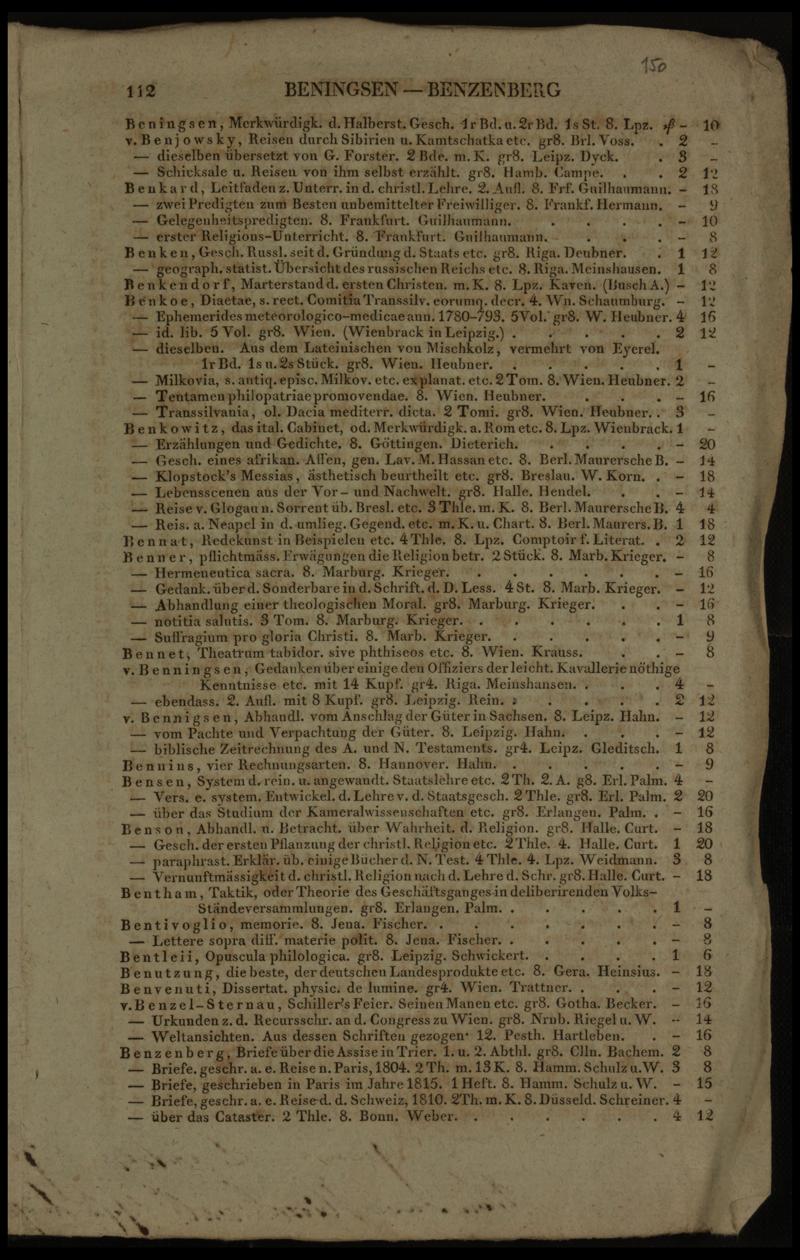 150
112 BENINGSEN — BENZENBERG
Beningsen, Merkwürdigk. d. Halberst. Gesch. 1r Bd. u. 2r Bd. 1s St. 8. Lpz. - 10
v. Benjowsky, Reisen durch Sibirien u. Kamtschatka etc. gr8. Brl. Voss. . 2 -
— dieselben übersetzt von G. Forster. 2 Bde. m. K. gr8. Leipz. Dyck. . 3 -
— Schicksale u. Reisen von ihm selbst erzählt. gr8. Hamb. Campe. . . 2 12
Benkard, Leitfaden z. Unterr. in d. christl. Lehre. 2. Aufl. 8. Frf. Guilhaumann. - 18
— zwei Predigten zum Besten unbemittelter Freiwilliger. 8. Frankf. Hermann. - 9
— Gelegenheitspredigten. 8. Frankfurt. Guilhaumann. . . . . - 10
— erster Religions-Unterricht. 8. Frankfurt. Guilhaumann. . . . - 8
Benken, Gesch. Russl. seit d. Gründung d. Staats etc. gr8. Riga. Deubner. . 1 12
— geograph. statist. Übersicht des russischen Reichs etc. 8. Riga. Meinshausen. 1 8
Benkendorf, Marterstand d. ersten Christen. m. K. 8. Lpz. Kaven. (Busch A.) - 12
Benkoe, Diaetae, s. rect. Comitia Transsilv. eorumq. decr. 4. Wn. Schaumburg. - 12
— Ephemerides meteorologico-medicae ann. 1780-793. 5Vol. gr8. W. Heubner. 4 16
— id. lib. 5 Vol. gr8. Wien. (Wienbrack in Leipzig.) . . . . . 2 12
— dieselben. Aus dem Lateinischen von Mischkolz, vermehrt von Eyerel.
1r Bd. 1s u. 2s Stück. gr8. Wien. Heubner. . . . . . 1 -
— Milkovia, s. antiq. episc. Milkov. etc. explanat. etc. 2 Tom. 8. Wien. Heubner. 2 -
— Tentamen philopatriae promovendae. 8. Wien. Heubner. . . . - 16
— Transsilvania, ol. Dacia mediterr. dicta. 2 Tomi. gr8. Wien. Heubner. . 3 -
Benkowitz, das ital. Cabinet, od. Merkwürdigk. a. Rom etc. 8. Lpz. Wienbrack. 1 -
— Erzählungen und Gedichte. 8. Göttingen. Dieterich. . . . . - 20
— Gesch. eines afrikan. Affen, gen. Lav. M. Hassan etc. 8. Berl. Maurersche B. - 14
— Klopstock's Messias, ästhetisch beurtheilt etc. gr8. Breslau. W. Korn. . - 18
— Lebensscenen aus der Vor- und Nachwelt. gr8. Halle. Hendel. . . - 14
— Reise v. Glogau n. Sorrent üb. Bresl. etc. 3 Thle. m. K. 8. Berl. Maurersche B. 4 4
— Reis. a. Neapel in d. umlieg. Gegend. etc. m. K. u. Chart. 8. Berl. Maurers. B. 1 18
Bennat, Redekunst in Beispielen etc. 4 Thle. 8. Lpz. Comptoir f. Literat. . 2 12
Benner, pflichtmäss. Erwägungen die Religion betr. 2 Stück. 8. Marb. Krieger. - 8
— Hermeneutica sacra. 8. Marburg. Krieger. . . . . . . - 16
— Gedank. über d. Sonderbare in d. Schrift. d. D. Less. 4 St. 8. Marb. Krieger. - 12
— Abhandlung einer theologischen Moral. gr8. Marburg. Krieger. . . - 16
— notitia salutis. 3 Tom. 8. Marburg. Krieger. . . . . . 1 8
— Suffragium pro gloria Christi. 8. Marb. Krieger. . . . . . - 9
Bennet, Theatrum tabidor. sive phthiseos etc. 8. Wien. Krauss. . . - 8
v. Benningsen, Gedanken über einige den Offiziers der leicht. Kavallerie nöthige
Kenntnisse etc. mit 14 Kupf. gr4. Riga. Meinshausen. . . . 4 -
— ebendass. 2. Aufl. mit 8 Kupf. gr8. Leipzig. Rein. . . . . . 2 12
v. Bennigsen, Abhandl. vom Anschlag der Güter in Sachsen. 8. Leipz. Hahn. - 12
— vom Pachte und Verpachtung der Güter. 8. Leipzig. Hahn. . . . - 12
— biblische Zeitrechnung des A. und N. Testaments. gr4. Leipz. Gleditsch. 1 8
Bennins, vier Rechnungsarten. 8. Hannover. Hahn. . . . . . - 9
Bensen, System d. rein. u. angewandt. Staatslehre etc. 2 Th. 2. A. g8. Erl. Palm. 4 -
— Vers. e. system. Entwickel. d. Lehre v. d. Staatsgesch. 2 Thle. gr8. Erl. Palm. 2 20
— über das Studium der Kameralwissenschaften etc. gr8. Erlangen. Palm. . - 16
Benson, Abhandl. u. Betracht. über Wahrheit. d. Religion. gr8. Halle. Curt. - 18
— Gesch. der ersten Pflanzung der christl. Religion etc. 2 Thle. 4. Halle. Curt. 1 20
— paraphrast. Erklär. üb. einige Bücher d. N. Test. 4 Thle. 4. Lpz. Weidmann. 3 8
— Vernunftmässigkeit d. christl. Religion nach d. Lehre d. Schr. gr8. Halle. Curt. - 18
Bentham, Taktik, oder Theorie des Geschäftsganges in deliberirenden Volks-
Ständeversammlungen. gr8. Erlangen. Palm. . . . . . 1 -
Bentivoglio, memorie. 8. Jena. Fischer. . . . . . . . - 8
— Lettere sopra diff. materie polit. 8. Jena. Fischer. . . . . . - 8
Bentleii, Opuscula philologica. gr8. Leipzig. Schwickert. . . . . 1 6
Benutzung, die beste, der deutschen Landesprodukte etc. 8. Gera. Heinsius. - 18
Benvenuti, Dissertat. physic. de lumine. gr4. Wien. Trattner. . . . - 12
v. Benzel-Sternau, Schiller's Feier. Seinen Manen etc. gr8. Gotha. Becker. - 16
— Urkunden z. d. Recursschr. an d. Congress zu Wien. gr8. Nrnb. Riegel u. W. - 14
— Weltansichten. Aus dessen Schriften gezogen. 12. Pesth. Hartleben. . - 16
Benzenberg, Briefe über die Assise in Trier. 1. u. 2. Abthl. gr8. Clln. Bachem. 2 8
— Briefe. geschr. a. e. Reise n. Paris, 1804. 2 Th. m. 13 K. 8. Hamm. Schulz u. W. 3 8
— Briefe, geschrieben in Paris im Jahre 1815. 1 Heft. 8. Hamm. Schulz u. W. - 15
— Briefe, geschr. a. e. Reise d. d. Schweiz, 1810. 2Th. m. K. 8. Düsseld. Schreiner. 4 -
— über das Cataster. 2 Thle. 8. Bonn. Weber. . . . . . . 4 12